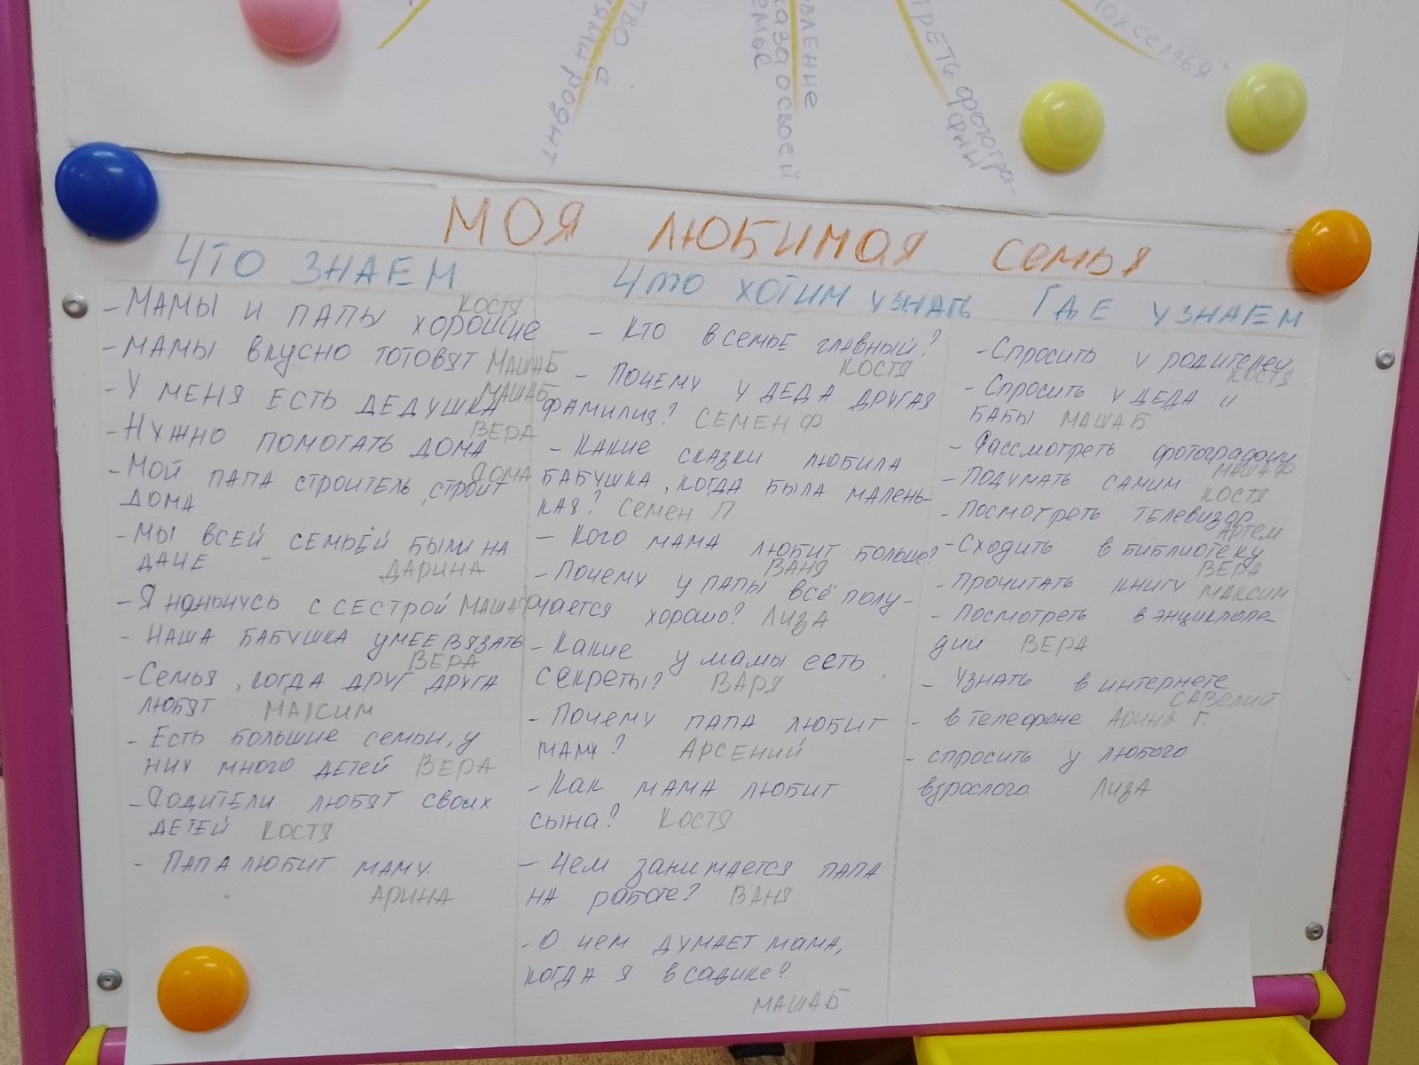 ство с
родит
вление
каза о своей
семье
треть фотогра-
фии
моя семья"
МОЯ ЛЮБИМАЯ СЕМЬЯ
ЧТО ЗНАЕМ
- МАМЫ И ПАПЫ ХОРОШИЕ КОСТЯ
- МАМЫ ВКУСНО ГОТОВЯТ МАША Б
- У МЕНЯ ЕСТЬ ДЕДУШКА МАША Б
- НУЖНО ПОМОГАТЬ ДОМА ВЕРА
- МОЙ ПАПА СТРОИТЕЛЬ, СТРОИТ
ДОМА
- МЫ ВСЕЙ СЕМЬЁЙ БЫЛИ НА
ДАЧЕ - ДАРИНА
- Я НЯНЬЧУСЬ С СЕСТРОЙ МАША
- НАША БАБУШКА УМЕЕ ВЯЗАТЬ
ВЕРА
- СЕМЬЯ, КОГДА ДРУГ ДРУГА
ЛЮБЯТ МАКСИМ
- ЕСТЬ БОЛЬШИЕ СЕМЬИ, У
НИХ МНОГО ДЕТЕЙ ВЕРА
- РОДИТЕЛИ ЛЮБЯТ СВОИХ
ДЕТЕЙ КОСТЯ
- ПАПА ЛЮБИТ МАМУ.
АРИНА
ЧТО ХОТИМ УЗНАТЬ
- КТО В СЕМЬЕ ГЛАВНЫЙ?
КОСТЯ
- ПОЧЕМУ У ДЕДА ДРУГАЯ
ФАМИЛИЯ? СЕМЕН Ф
- КАКИЕ СКАЗКИ ЛЮБИЛА
БАБУШКА, КОГДА БЫЛА МАЛЕНЬ-
КАЯ? СЕМЕН П
- КОГО МАМА ЛЮБИТ БОЛЬШЕ?
ВАНЯ
- ПОЧЕМУ У ПАПЫ ВСЁ ПОЛУ-
ЧАЕТСЯ ХОРОШО? ЛИЗА
- КАКИЕ У МАМЫ ЕСТЬ
СЕКРЕТЫ? ВАРЯ
- ПОЧЕМУ ПАПА ЛЮБИТ
МАМУ? АРСЕНИЙ
- КАК МАМА ЛЮБИТ
СЫНА? КОСТЯ
- ЧЕМ ЗАНИМАЕТСЯ ПАПА
НА РАБОТЕ? ВАНЯ
- О ЧЕМ ДУМАЕТ МАМА,
КОГДА Я В САДИКЕ?
МАША Б
ГДЕ УЗНАЕМ
- СПРОСИТЬ У РОДИТЕЛЕЙ
КОСТЯ
- СПРОСИТЬ У ДЕДА И
БАБЫ МАША Б
- РАССМОТРЕТЬ ФОТОГРАФИИ
МАША Ф
- ПОДУМАТЬ САМИМ КОСТЯ
- ПОСМОТРЕТЬ ТЕЛЕВИЗОР
АРТЕМ
- СХОДИТЬ В БИБЛИОТЕКУ
ВЕРА
- ПРОЧИТАТЬ КНИГУ МАКСИМ
- ПОСМОТРЕТЬ В ЭНЦИКЛОПЕ
ДИИ ВЕРА
- УЗНАТЬ В ИНТЕРНЕТЕ
САВЕЛИЙ
- В ТЕЛЕФОНЕ АРИНА Г.
- СПРОСИТЬ У ЛЮБОГО
ВЗРОСЛОГО. ЛИЗА